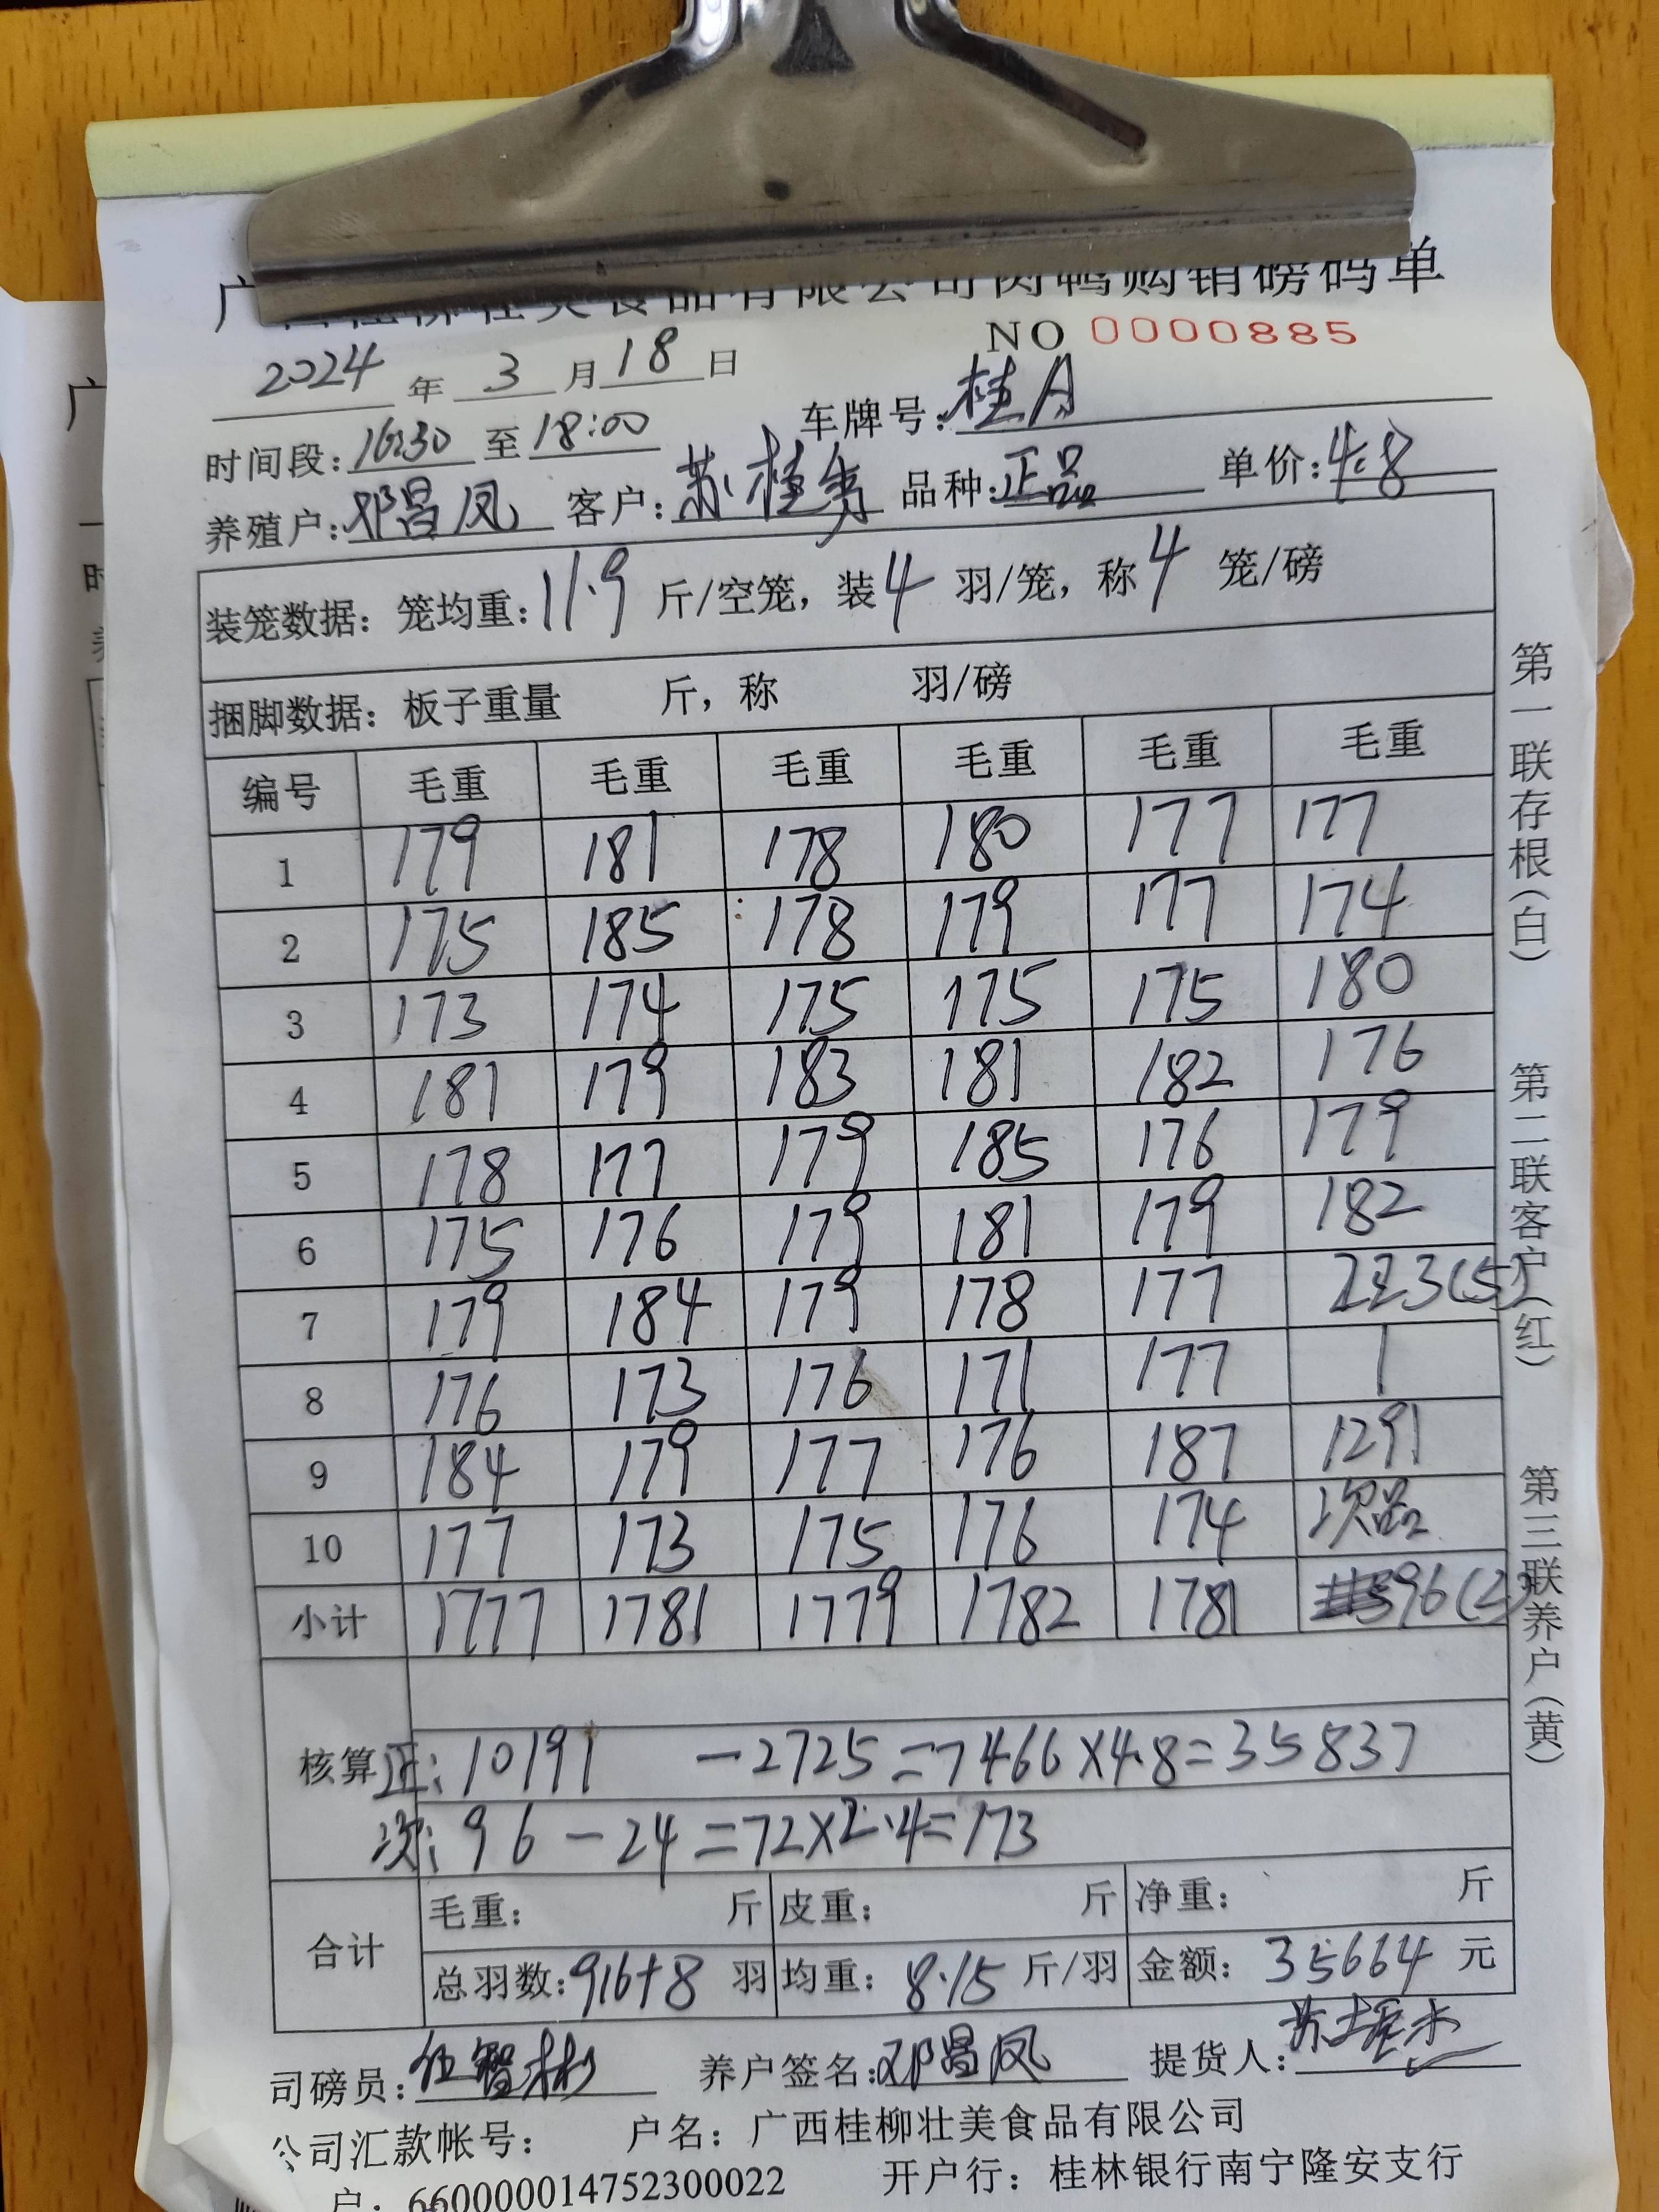 广西桂柳壮美食品有限公司肉鸭购销磅码单
NO 0000885
2024 年 3 月 18 日
时间段: 16:30 至 18:00 车牌号: 桂A
养殖户: 邓昌凤 客户: 苏桂秀 品种: 正品 单价: 4.8
装笼数据: 笼均重: 11.9 斤/空笼, 装 4 羽/笼, 称 4 笼/磅
捆脚数据: 板子重量 斤, 称 羽/磅
编号 毛重 毛重 毛重 毛重 毛重 毛重
1 179 181 178 180 177 177
2 175 185 178 179 177 174
3 173 174 175 175 175 180
4 181 179 183 181 182 176
5 178 177 179 185 176 179
6 175 176 179 181 179 182
7 179 184 179 178 177 223(5)
8 176 173 176 171 177 1
9 184 179 177 176 187 1291
10 177 173 175 176 174 次品
小计 1777 1781 1779 1782 1781 96(2)
核算 正: 10191 -2725=7466×4.8=35837
次: 96-24=72×2.4=173
合计 毛重: 斤 皮重: 斤 净重: 斤
总羽数: 916+8 羽 均重: 8.15 斤/羽 金额: 35664 元
司磅员: 伍智彬 养户签名: 邓昌凤 提货人:
公司汇款帐号: 户名: 广西桂柳壮美食品有限公司
户: 660000014752300022 开户行: 桂林银行南宁隆安支行
第一联存根(白)
第二联客户(红)
第三联养户(黄)